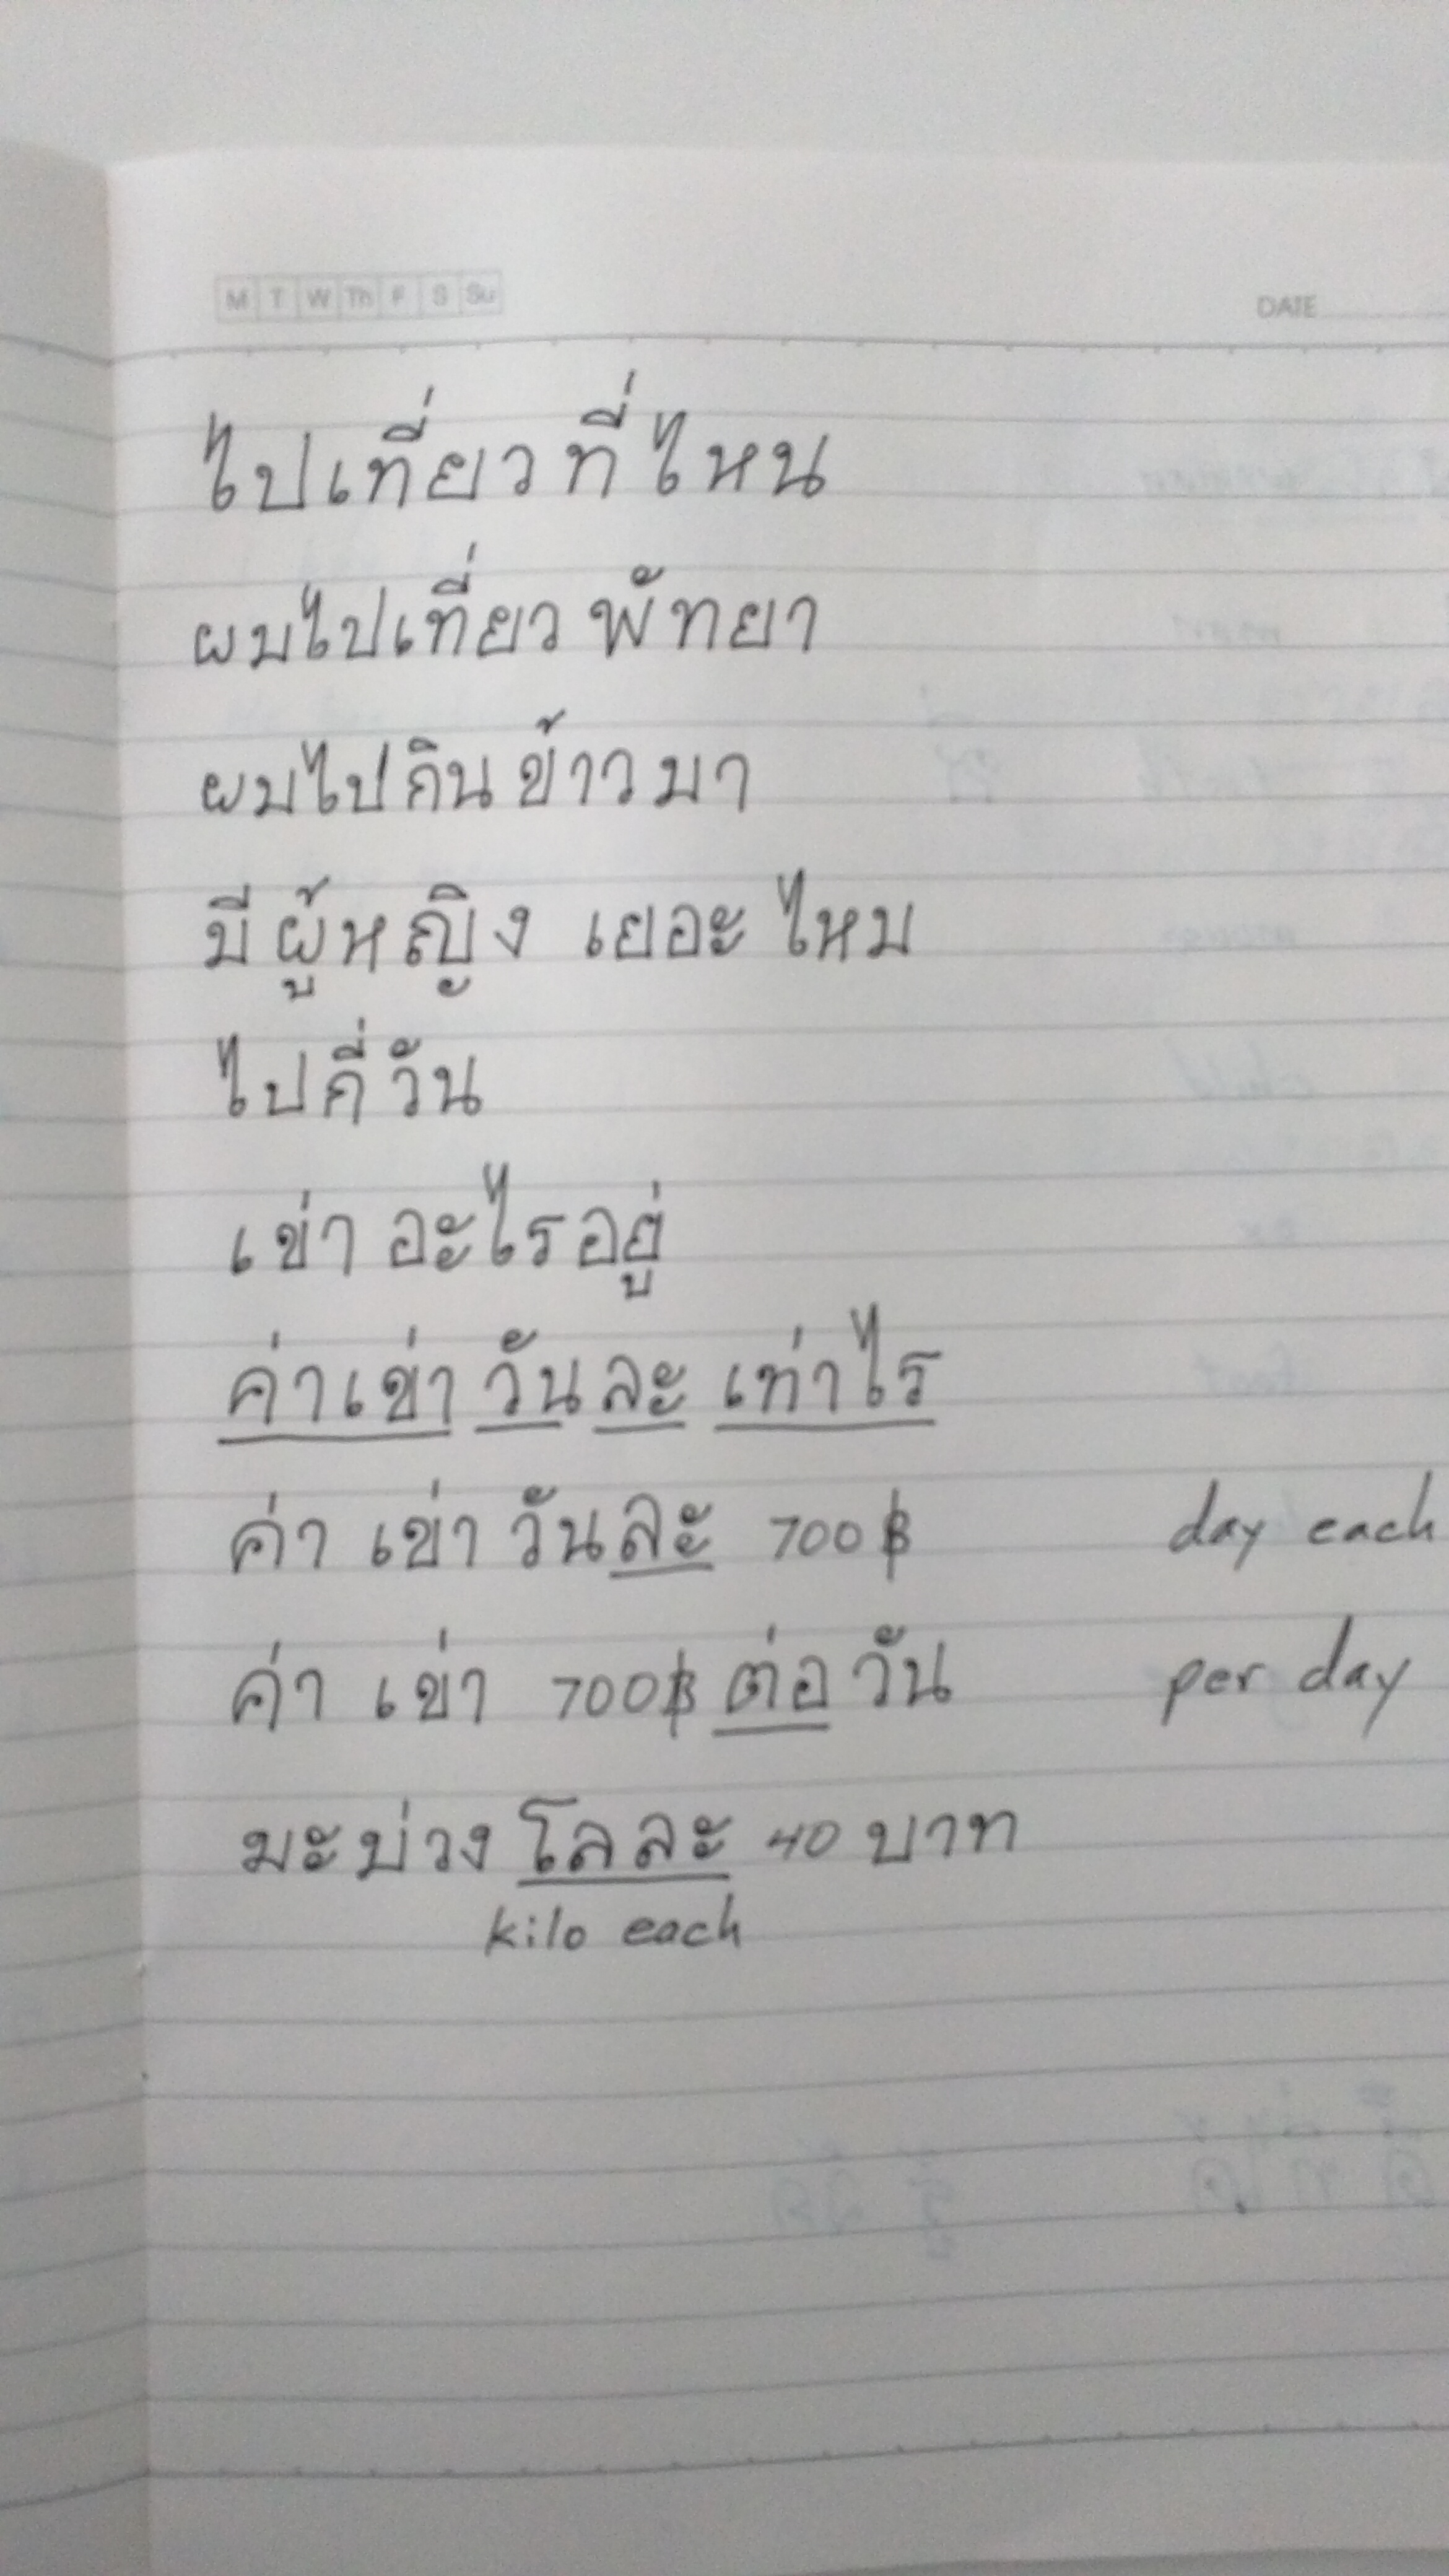 M T W Th F S Su DATE
ไปเที่ยวที่ไหน
ผมไปเที่ยวพัทยา
ผมไปกินข้าวมา
มีผู้หญิง เยอะ ไหม
ไปกี่วัน
เช่า อะไรอยู่
ค่าเช่า วัน ละ เท่าไร
ค่า เช่า วันละ 700฿ day each
ค่า เช่า 700฿ ต่อ วัน per day
มะบ่วง โลละ 40 บาท
kilo each